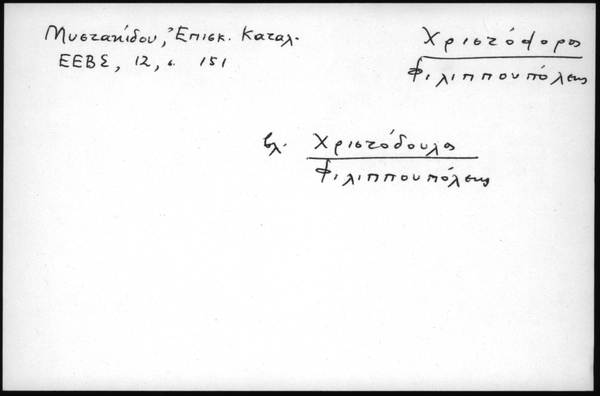 Μυστακίδου, Ἐπισκ. Καταλ.
ΕΕΒΣ, 12, σ. 151
Χριστόφορος
Φιλιππουπόλεως
βλ. Χριστόδουλος
Φιλιππουπόλεως